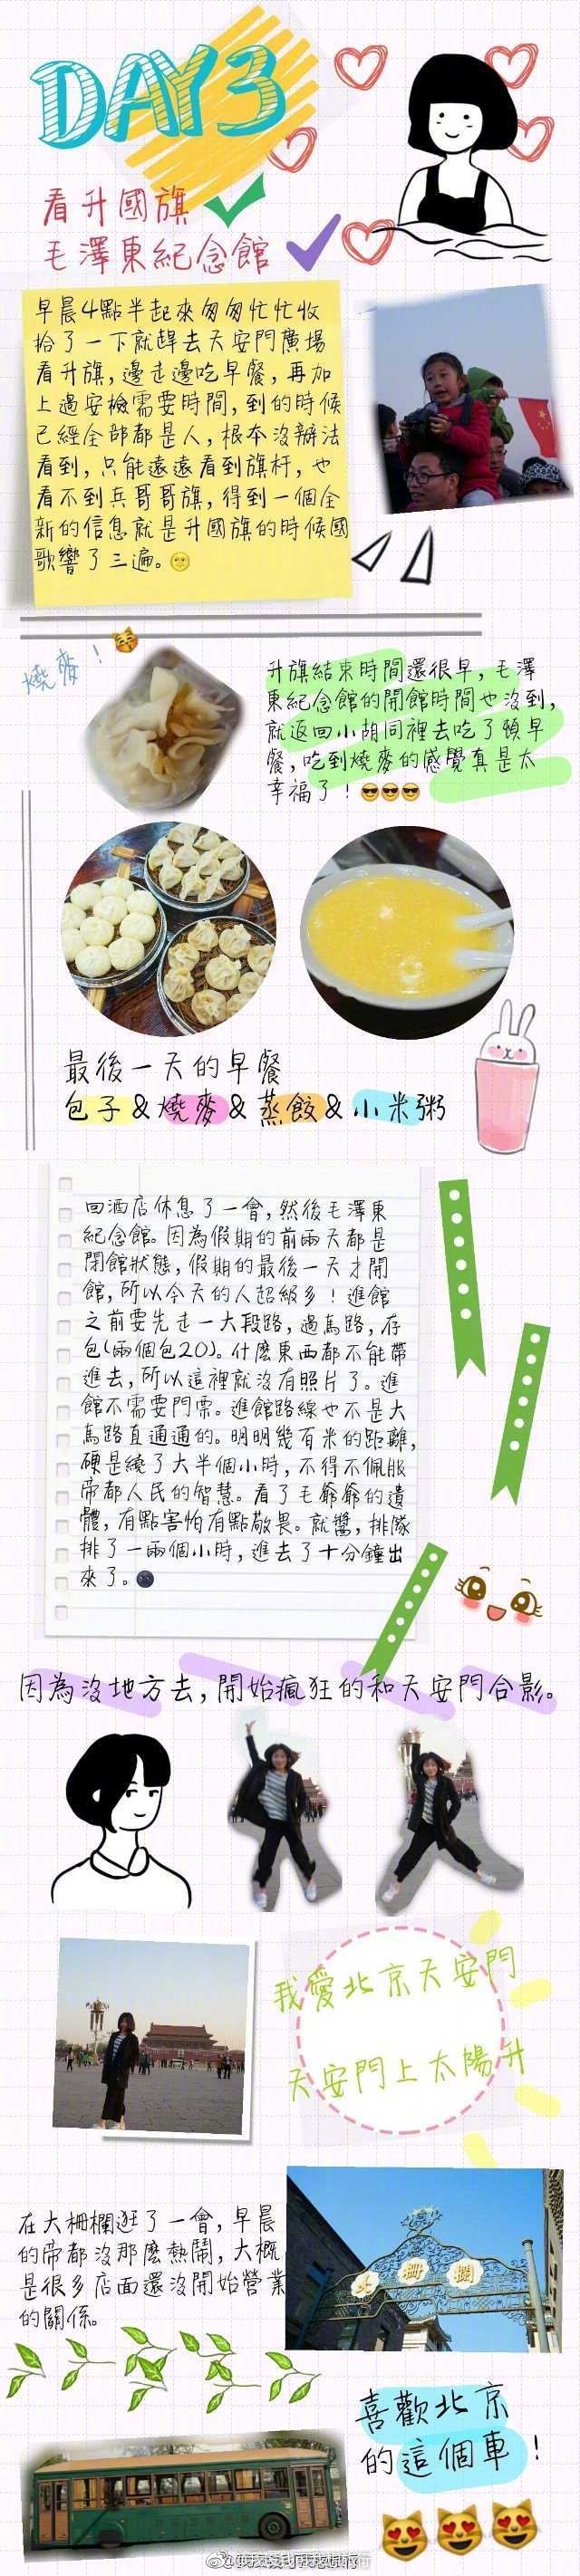 DAY3
看升國旗
毛澤東紀念館
早晨4點半起來匆匆忙忙收
拾了一下就趕去天安門廣場
看升旗,邊走邊吃早餐,再加
上過安檢需要時間,到的時候
已經全部都是人,根本沒辦法
看到,只能遠遠看到旗杆,也
看不到兵哥哥旗,得到一個全
新的信息就是升國旗的時候國
歌響了三遍。
燒麥!
升旗結束時間還很早,毛澤
東紀念館的開館時間也沒到,
就返回小胡同裡去吃了頓早
餐,吃到燒麥的感覺真是太
幸福了!
最後一天的早餐
包子&燒麥&蒸餃&小米粥
回酒店休息了一會,然後毛澤東
紀念館。因為假期的前兩天都是
閉館狀態,假期的最後一天才開
館,所以今天的人超級多!進館
之前要先走一大段路,過馬路,存
包(兩個包20)。什麼東西都不能帶
進去,所以這裡就沒有照片了。進
館不需要門票。進館路線也不是大
馬路直通通的。明明幾百米的距離,
硬是繞了大半個小時,不得不佩服
帝都人民的智慧。看了毛爺爺的遺
體,有點害怕有點敬畏。就醬,排隊
排了一兩個小時,進去了十分鐘出
來了。
因為沒地方去,開始瘋狂的和天安門合影。
我愛北京天安門
天安門上太陽升
在大柵欄逛了一會,早晨
的帝都沒那麼熱鬧,大概
是很多店面還沒開始營業
的關係。
大柵欄
喜歡北京
的這個車!